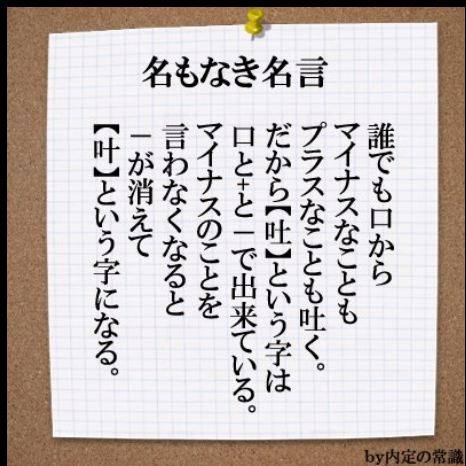 名もなき名言
誰でも口から
マイナスなことも
プラスなことも吐く。
だから【吐】という字は
口と+と－で出来ている。
マイナスのことを
言わなくなると
－が消えて
【叶】という字になる。
by内定の常識